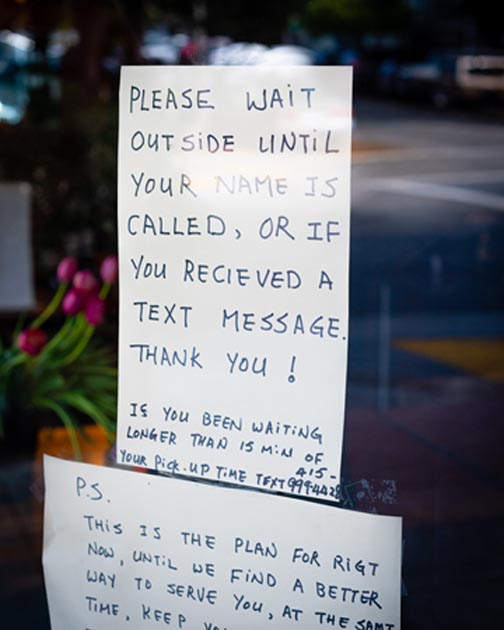 PLEASE WAIT
OUTSIDE UNTIL
YOUR NAME IS
CALLED, OR IF
YOU RECIEVED A
TEXT MESSAGE.
THANK YOU!
IF YOU BEEN WAITING
LONGER THAN 15 MIN OF
YOUR PICK-UP TIME TEXT 415-
999-4428
P.S.
THIS IS THE PLAN FOR RIGT
NOW, UNTIL WE FIND A BETTER
WAY TO SERVE YOU, AT THE SAME
TIME, KEEP